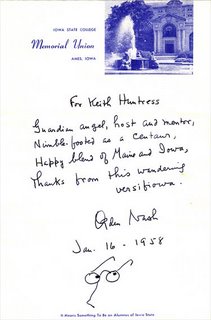 IOWA STATE COLLEGE
Memorial Union
AMES, IOWA
For Keith Huntress
Guardian angel, host and mentor,
Nimble-footed as a centaur,
Happy blend of Maine and Iowa,
Thanks from this wandering
versifiowa.
Ogden Nash
Jan. 16 - 1958
It Means Something To Be an Alumnus of Iowa State